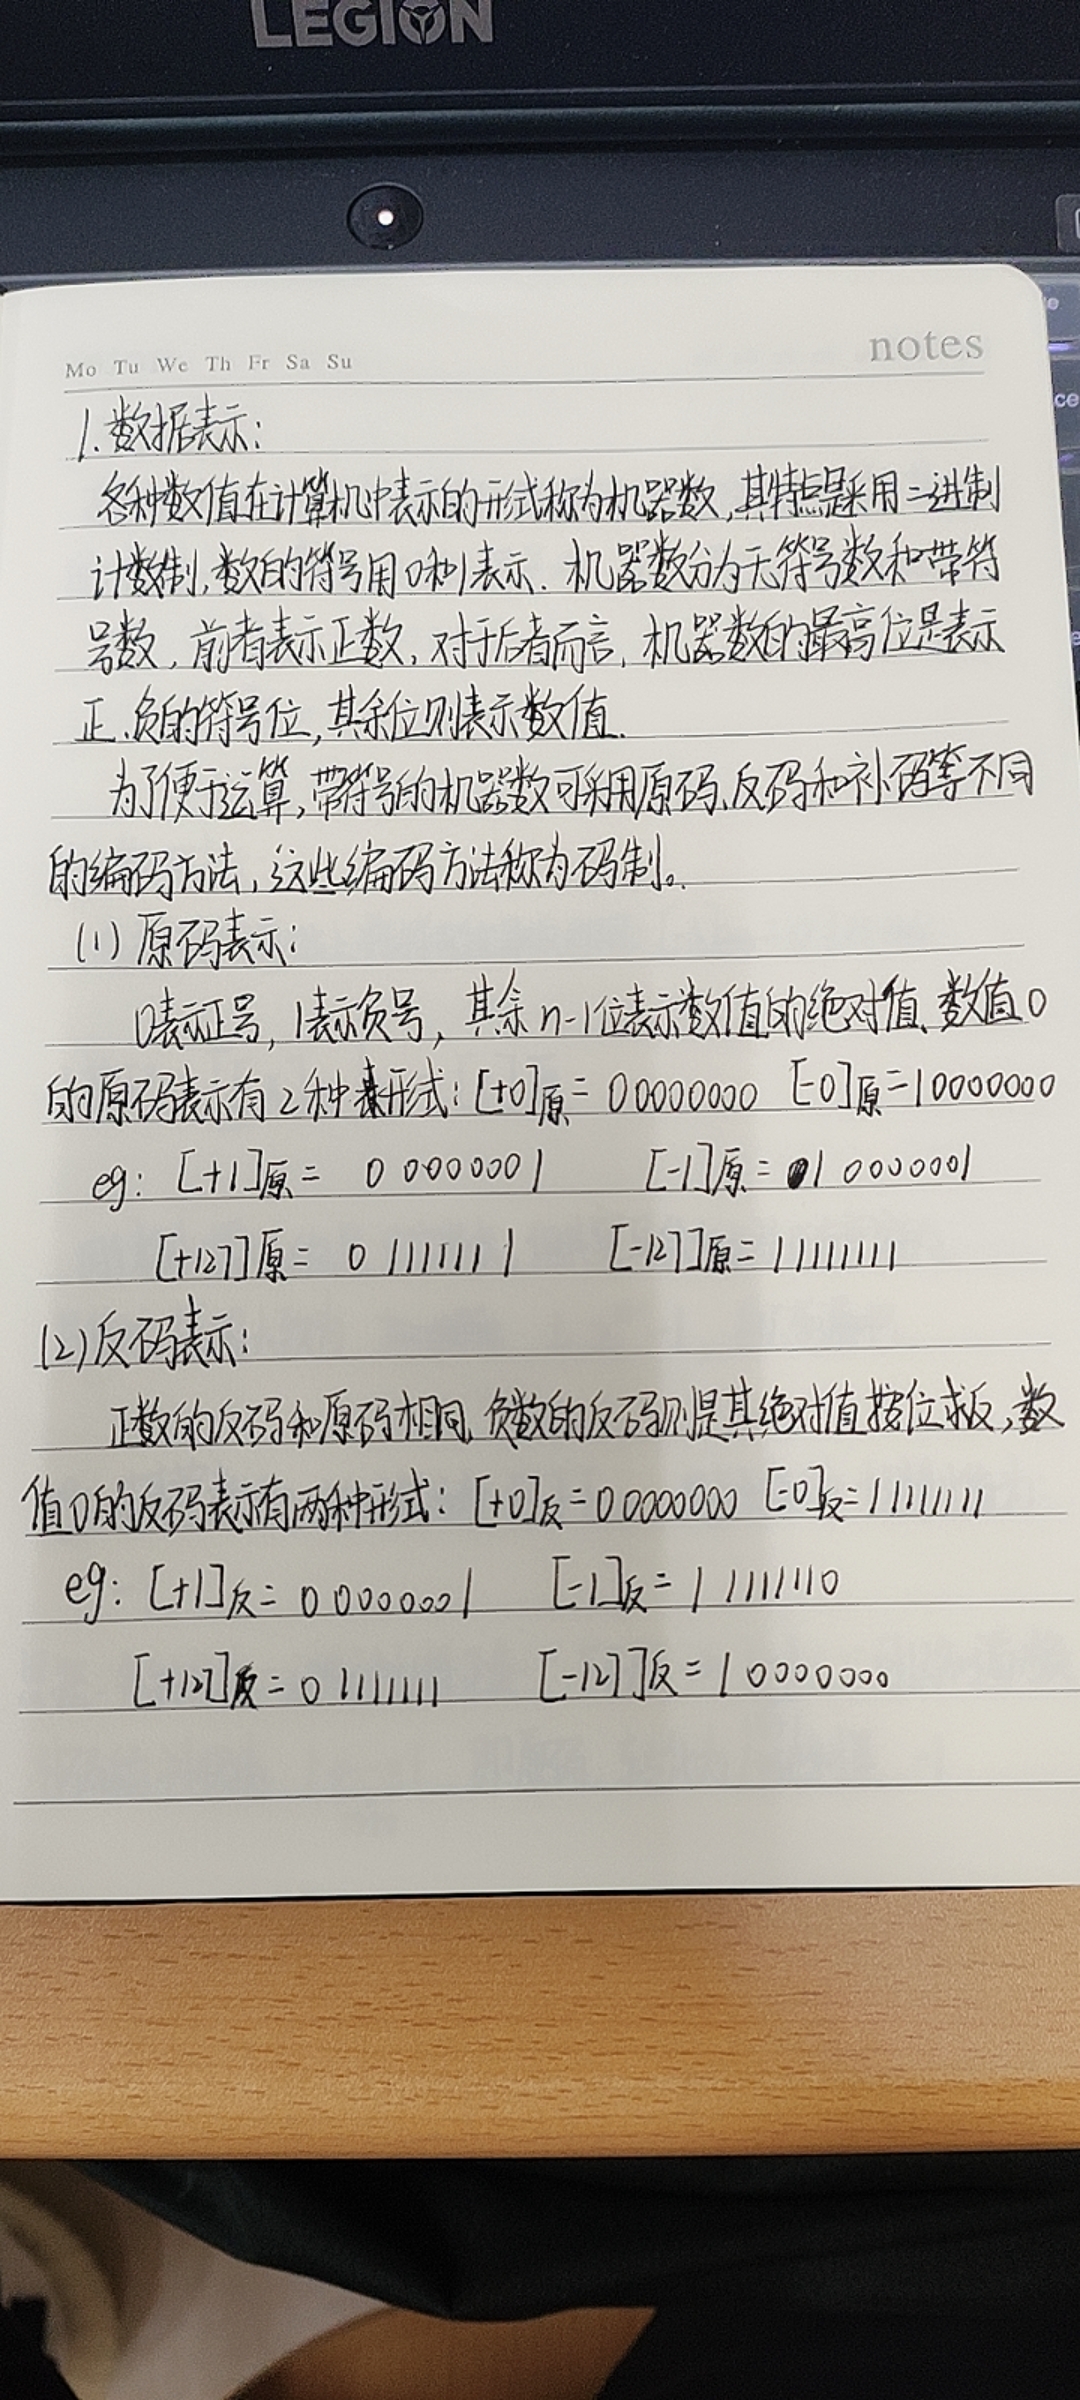 LEGION
Mo Tu We Th Fr Sa Su
notes
1.数据表示:
各种数值在计算机中表示的形式称为机器数,其特点是采用二进制
计数制,数的符号用0和1表示.机器数分为无符号数和带符
号数,前者表示正数,对于后者而言,机器数的最高位是表示
正、负的符号位,其余位则表示数值.
为了便于运算,带符号的机器数可采用原码、反码和补码等不同
的编码方法,这些编码方法称为码制。
(1)原码表示:
0表示正号,1表示负号,其余n-1位表示数值的绝对值、数值0
的原码表示有2种形式:[+0]原=00000000 [-0]原=10000000
eg: [+1]原= 0 0000001 [-1]原= 1 0000001
[+127]原= 0 1111111 [-127]原=11111111
(2)反码表示:
正数的反码和原码相同,负数的反码则是其绝对值按位求反,数
值0的反码表示有两种形式:[+0]反=00000000 [-0]反=11111111
eg: [+1]反= 0 0000001 [-1]反= 1 1111110
[+127]反= 0 1111111 [-127]反= 1 0000000